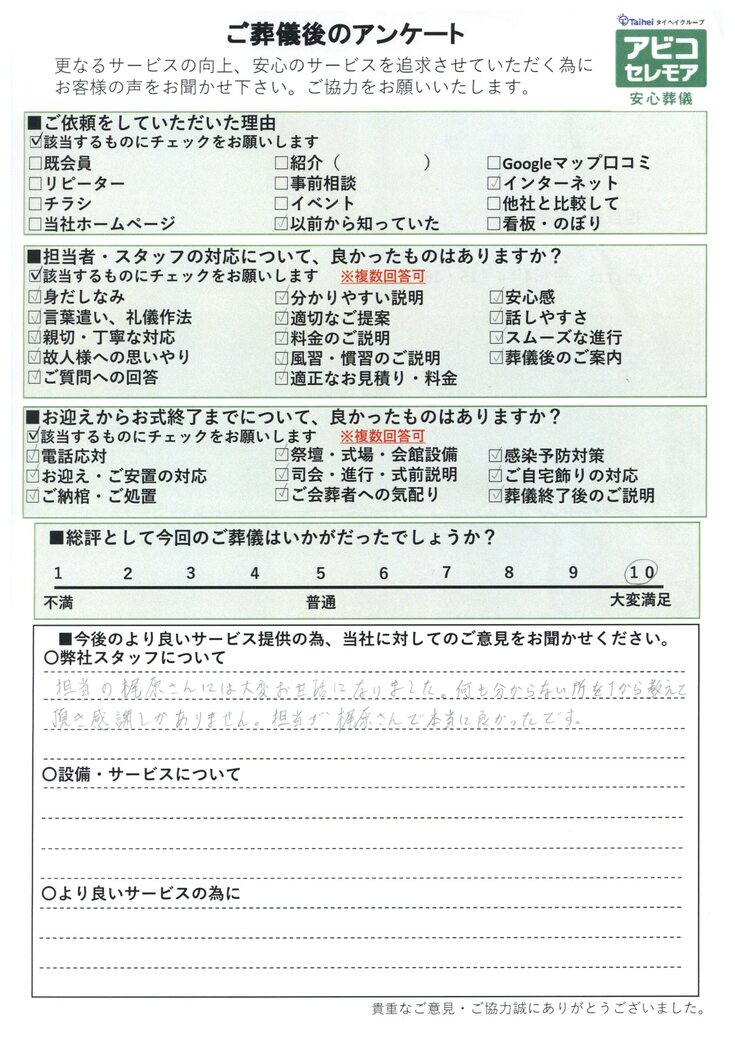 ご葬儀後のアンケート
Taihei タイヘイグループ
アビコ
セレモア
安心葬儀
更なるサービスの向上、安心のサービスを追求させていただく為に
お客様の声をお聞かせ下さい。ご協力をお願いいたします。
■ご依頼をしていただいた理由
☑該当するものにチェックをお願いします
□既会員 □紹介（ ） □Googleマップ口コミ
□リピーター □事前相談 ☑インターネット
□チラシ □イベント □他社と比較して
□当社ホームページ ☑以前から知っていた □看板・のぼり
■担当者・スタッフの対応について、良かったものはありますか？
☑該当するものにチェックをお願いします ※複数回答可
☑身だしなみ ☑分かりやすい説明 ☑安心感
☑言葉遣い、礼儀作法 ☑適切なご提案 ☑話しやすさ
☑親切・丁寧な対応 ☑料金のご説明 ☑スムーズな進行
☑故人様への思いやり ☑風習・慣習のご説明 ☑葬儀後のご案内
☑ご質問への回答 ☑適正なお見積り・料金
■お迎えからお式終了までについて、良かったものはありますか？
☑該当するものにチェックをお願いします ※複数回答可
☑電話応対 ☑祭壇・式場・会館設備 ☑感染予防対策
☑お迎え・ご安置の対応 ☑司会・進行・式前説明 ☑ご自宅飾りの対応
☑ご納棺・ご処置 ☑ご会葬者への気配り ☑葬儀終了後のご説明
■総評として今回のご葬儀はいかがだったでしょうか？
1 2 3 4 5 6 7 8 9 10
不満 普通 大変満足
■今後のより良いサービス提供の為、当社に対してのご意見をお聞かせください。
〇弊社スタッフについて
担当の梶原さんには大変お世話になりました。何も分からない所を1から教えて
頂き感謝しかありません。担当が梶原さんで本当に良かったです。
〇設備・サービスについて
〇より良いサービスの為に
貴重なご意見・ご協力誠にありがとうございました。